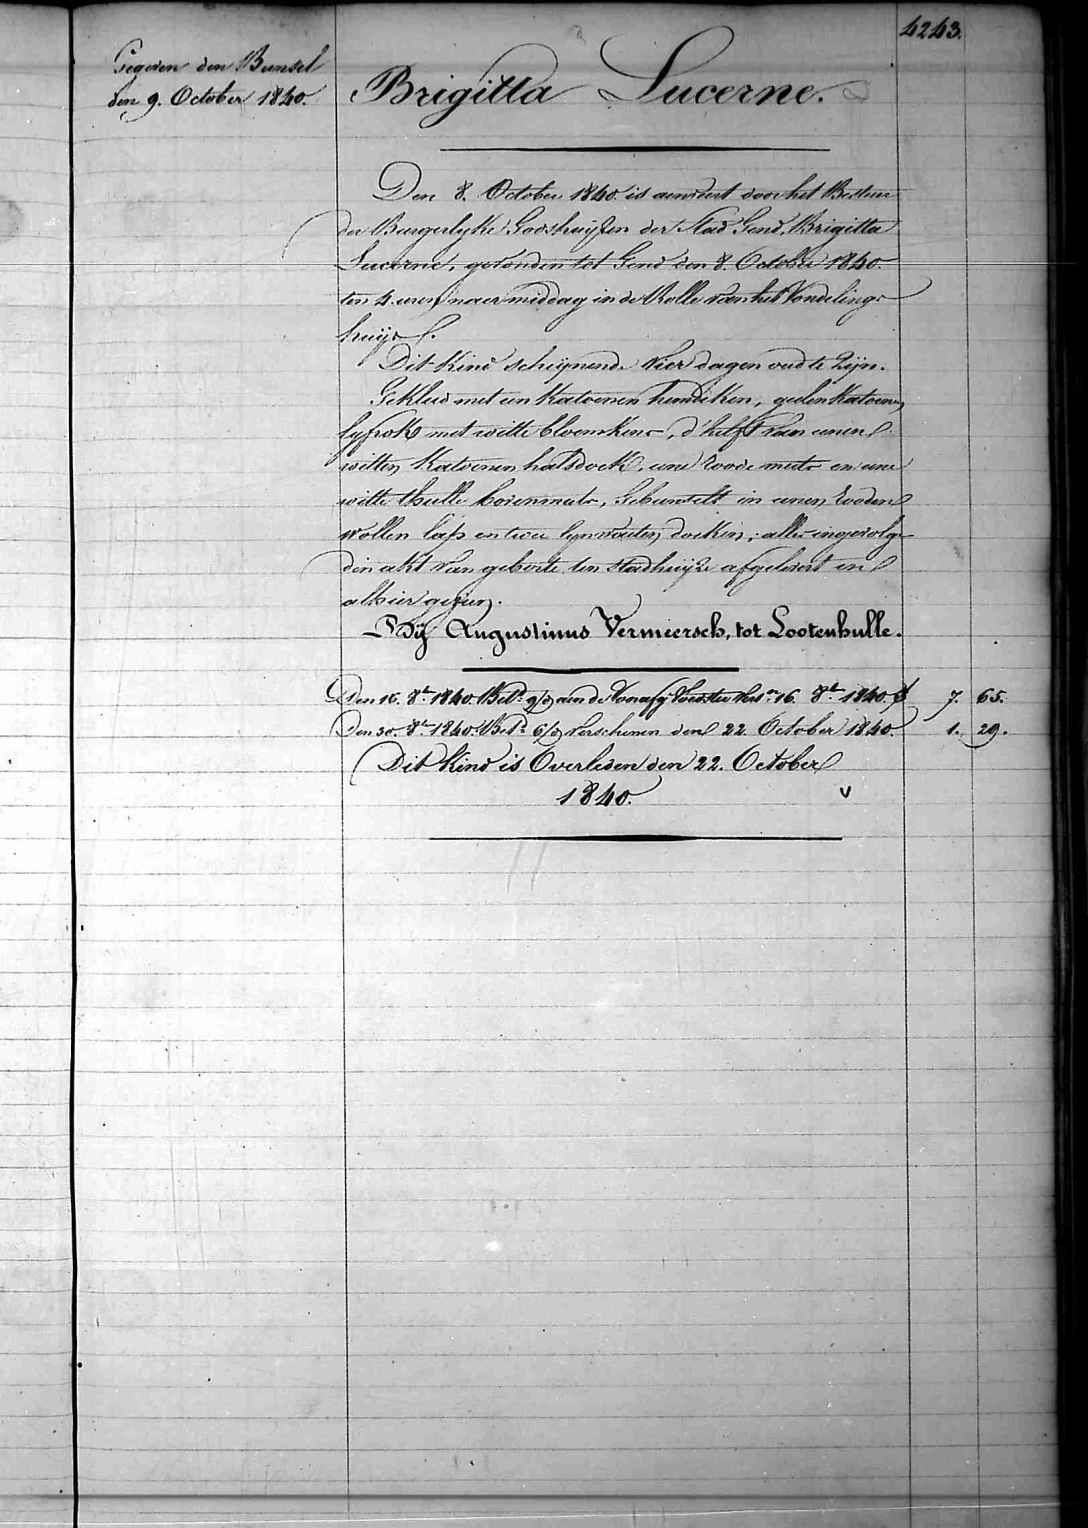 4243.
Gegeven den Bunsel
den 9. October 1840.
Brigitta Lucerne.
Den 8. October 1840. is aenveert door het Bestuer
der Burgerlyke Godshuijsen der Stad Gend, Brigitta
Lucerne, gevonden tot Gend den 8. October 1840.
ten 4. uren naermiddag in de Rolle van het Vondelings-
huijs.
Dit Kind schijnende vier dagen oud te zijn.
Gekleed met een Katoenen hemdeken, geelen Katoenen
lyfrok met witte bloemkens, d'helft van eenen
witten Katoenen halsdoek, eene roode muts en eene
witte thulle bovenmuts, Gebunselt in eenen rooden
wollen laps en twee lynwaeten doeken; alles ingevolge
den akt van geboorte ten stadhuijze afgelevert en
alhier gezien.
Bij Augustinus Vermeersch, tot Lootenhulle.
Den 16. 8.br 1840. Bet.d 9/d aen de Verschn. 16. 8.br 1840. 7. 65.
Den 30. 8.br 1840. Bet.d 6/d verschenen den 22 October 1840. 1. 29.
Dit Kind is Overleden den 22. October
1840. v